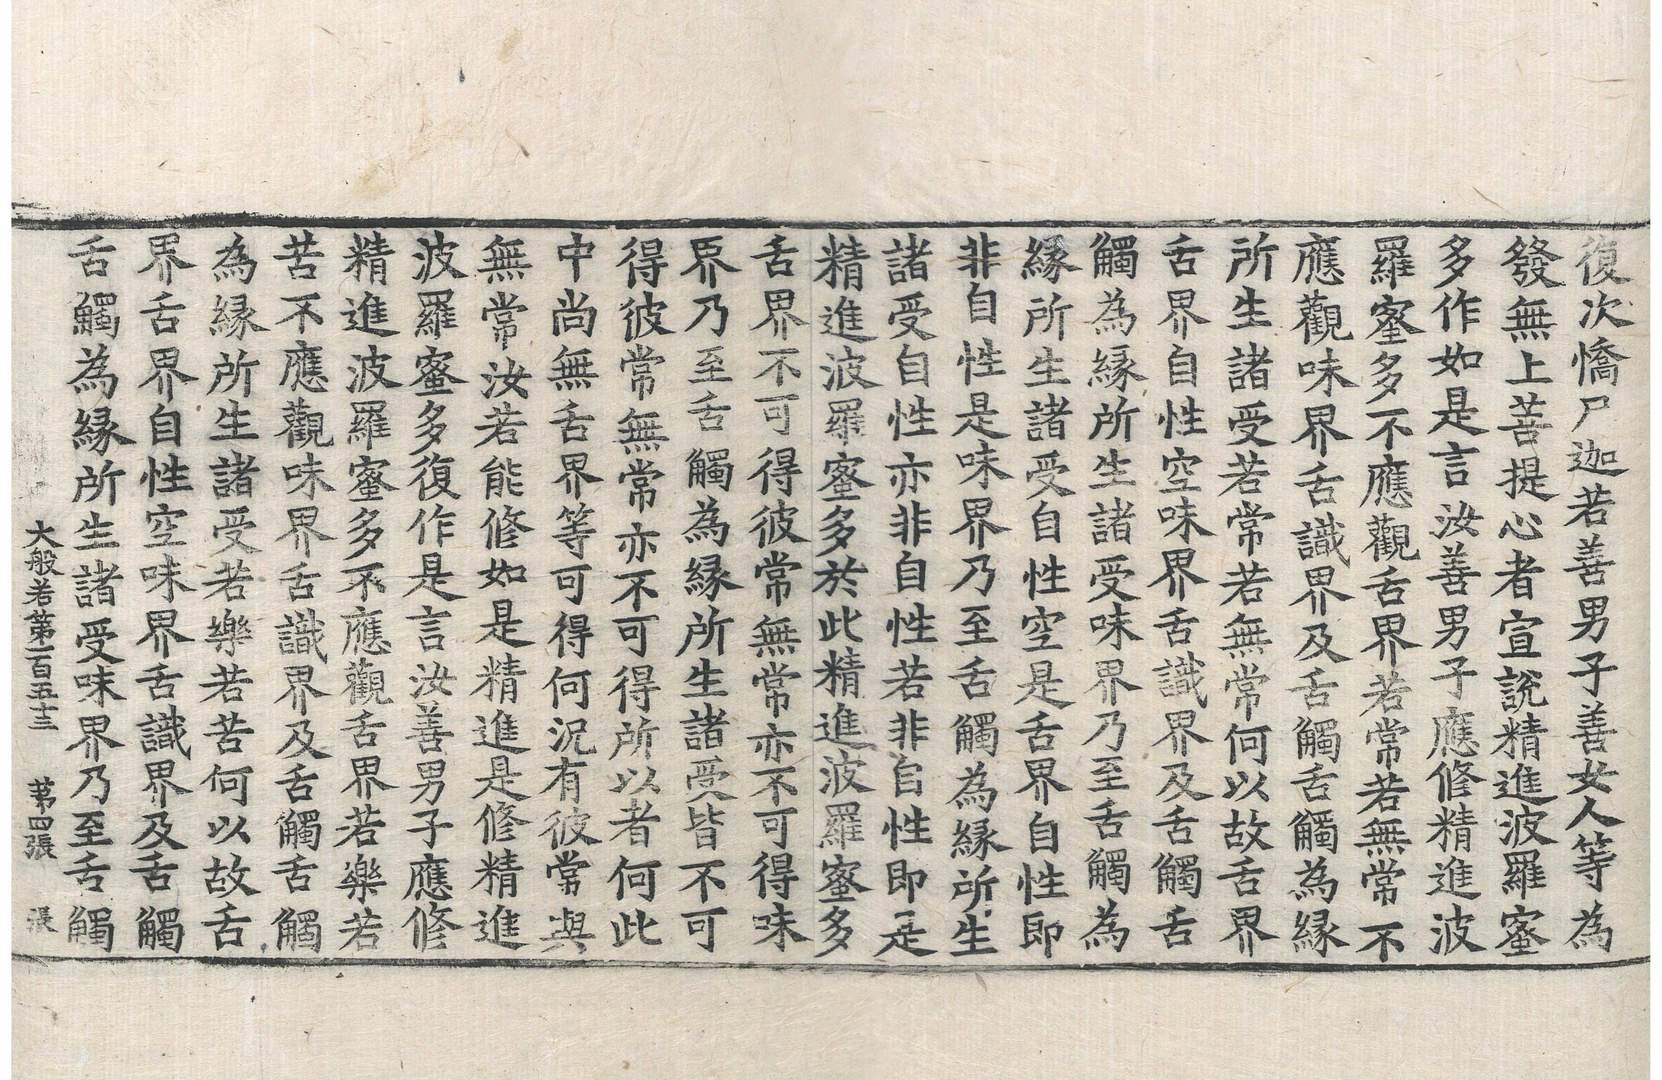 復次憍尸迦若善男子善女人等為
發無上菩提心者宣說精進波羅蜜
多作如是言汝善男子應修精進波
羅蜜多不應觀舌界若常若無常不
應觀味界舌識界及舌觸舌觸為緣
所生諸受若常若無常何以故舌界
舌界自性空味界舌識界及舌觸舌
觸為緣所生諸受味界乃至舌觸為
緣所生諸受自性空是舌界自性即
非自性是味界乃至舌觸為緣所生
諸受自性亦非自性若非自性即是
精進波羅蜜多於此精進波羅蜜多
舌界不可得彼常無常亦不可得味
界乃至舌觸為緣所生諸受皆不可
得彼常無常亦不可得所以者何此
中尚無舌界等可得何況有彼常與
無常汝若能修如是精進是修精進
波羅蜜多復作是言汝善男子應修
精進波羅蜜多不應觀舌界若樂若
苦不應觀味界舌識界及舌觸舌觸
為緣所生諸受若樂若苦何以故舌
界舌界自性空味界舌識界及舌觸
舌觸為緣所生諸受味界乃至舌觸
大般若第一百五十三 第四張 張